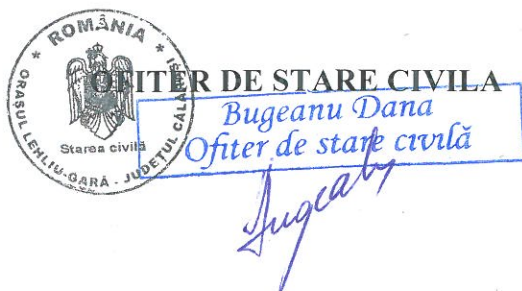 * ROMÂNIA *
ORAȘUL LEHLIU-GARĂ - JUDEȚUL CĂLĂRAȘI
Starea civilă
OFITER DE STARE CIVILA
Bugeanu Dana
Ofiter de stare civilă